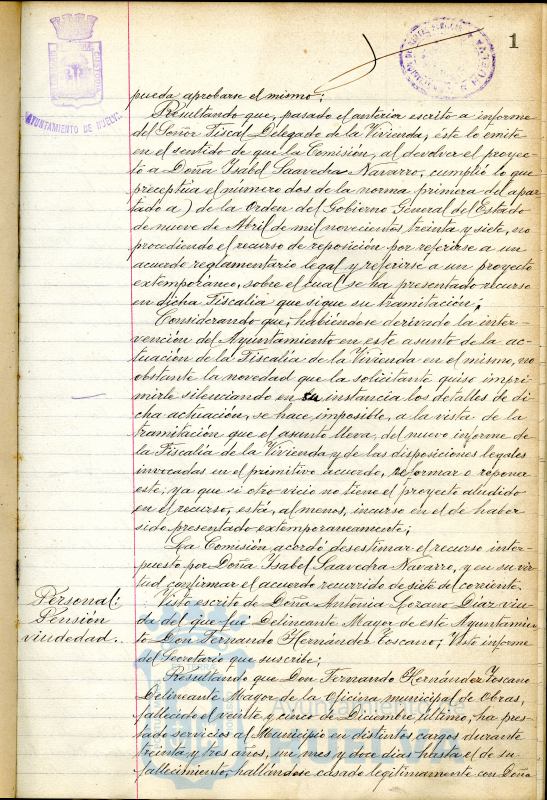 1
AYUNTAMIENTO DE HUELVA
pueda aprobarse el mismo;
Resultando que, pasado el anterior escrito a informe
del Señor Fiscal Delegado de la Vivienda, éste lo emite
en el sentido de que la Comisión, al devolver el proyec-
to a Doña Isabel Saavedra Navarro, cumplió lo que
preceptúa el número dos de la norma primera del apar-
tado a) de la Orden del Gobierno General del Estado
de nueve de Abril de mil novecientos treinta y siete, no
procediendo el recurso de reposición por referirse a un
acuerdo reglamentario legal y referirse a un proyecto
extemporáneo, sobre el cual se ha presentado recurso
en dicha Fiscalía que sigue su tramitación;
Considerando que, habiéndose derivado la inter-
vención del Ayuntamiento en este asunto de la ac-
tuación de la Fiscalía de la Vivienda en el mismo, no
obstante la novedad que la solicitante quiso impri-
mirle silenciando en su instancia los detalles de di-
cha actuación, se hace imposible, a la vista de la
tramitación que el asunto lleva, del nuevo informe de
la Fiscalía de la Vivienda y de las disposiciones legales
invocadas en el primitivo acuerdo, reformar o reponer
este; ya que si otro vicio no tiene el proyecto aludido
en el recurso, está, al menos, incurso en el de haber
sido presentado extemporaneamente;
La Comisión acordó desestimar el recurso inter-
puesto por Doña Isabel Saavedra Navarro, y en su vir-
tud, confirmar el acuerdo recurrido de siete del corriente.
Personal:
Pensión
viudedad.
Visto escrito de Doña Antonia Lozano Díaz viu-
da del que fué Delineante Mayor de este Ayuntamien-
to Don Fernando Hernández Toscano; Visto informe
del Secretario que suscribe;
Resultando que Don Fernando Hernández Toscano
Delineante Mayor de la Oficina municipal de Obras,
fallecido el veinte y cinco de Diciembre último, ha pres-
tado servicios al Municipio en distintos cargos durante
treinta y tres años, un mes y doce días hasta el de su
fallecimiento, hallándose casado legítimamente con Doña
Ayuntamiento de